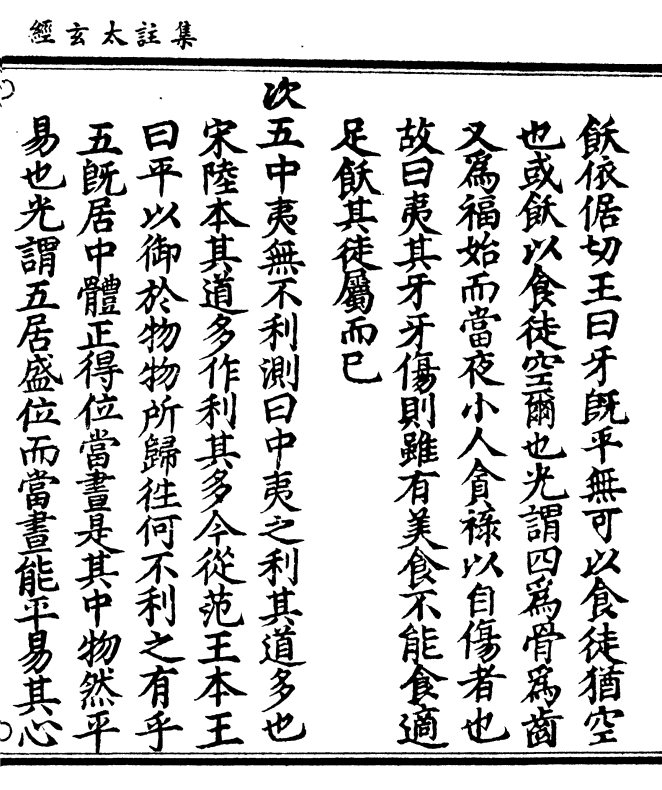 集註太玄經
飫依倨切王曰牙既平無可以食徒猶空
也或飫以食徒空爾也光謂四爲骨爲齒
又爲福始而當夜小人貪祿以自傷者也
故曰夷其牙牙傷則雖有美食不能食適
足飫其徒屬而已
次五中夷無不利測曰中夷之利其道多也
宋陸本其道多作利其多今從范王本王
曰平以御於物物所歸往何不利之有乎
五既居中體正得位當晝是其中物然平
易也光謂五居盛位而當晝能平易其心